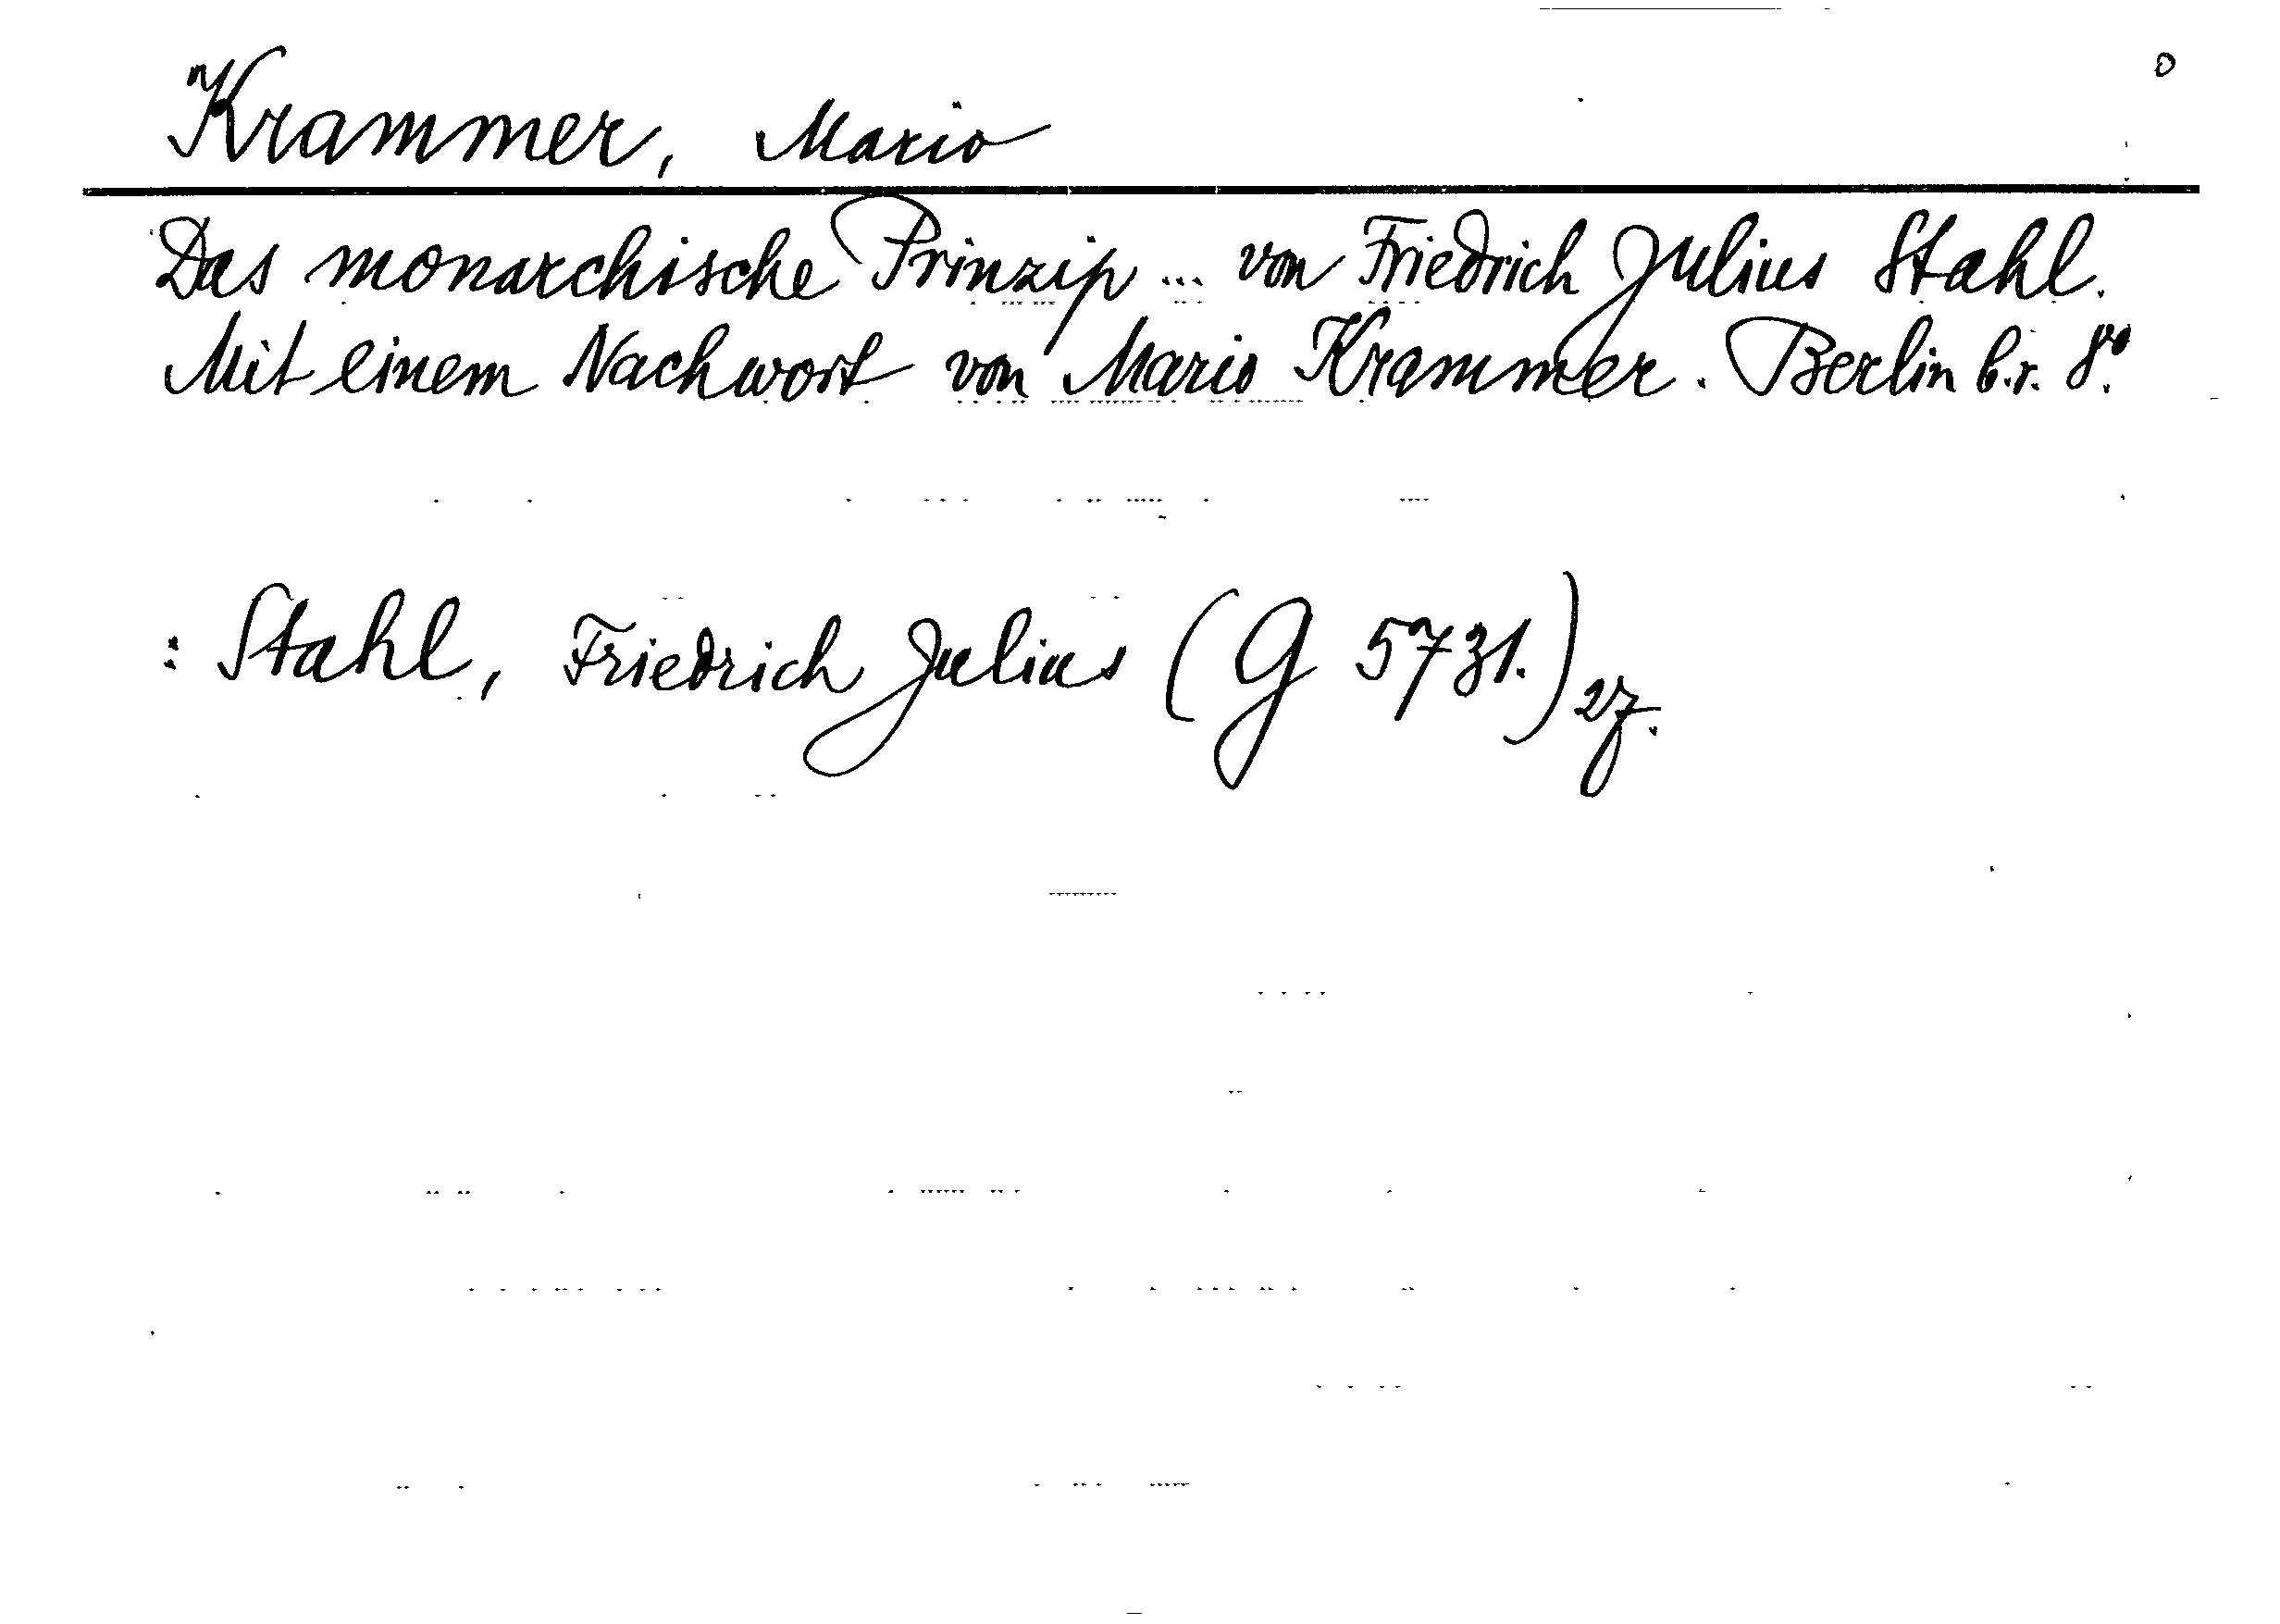 Krammer, Mario
Das monarchische Prinzip ... von Friedrich Julius Stahl.
Mit einem Nachwort von Mario Krammer. Berlin b.r. 8°.
: Stahl, Friedrich Julius (G 5731.)